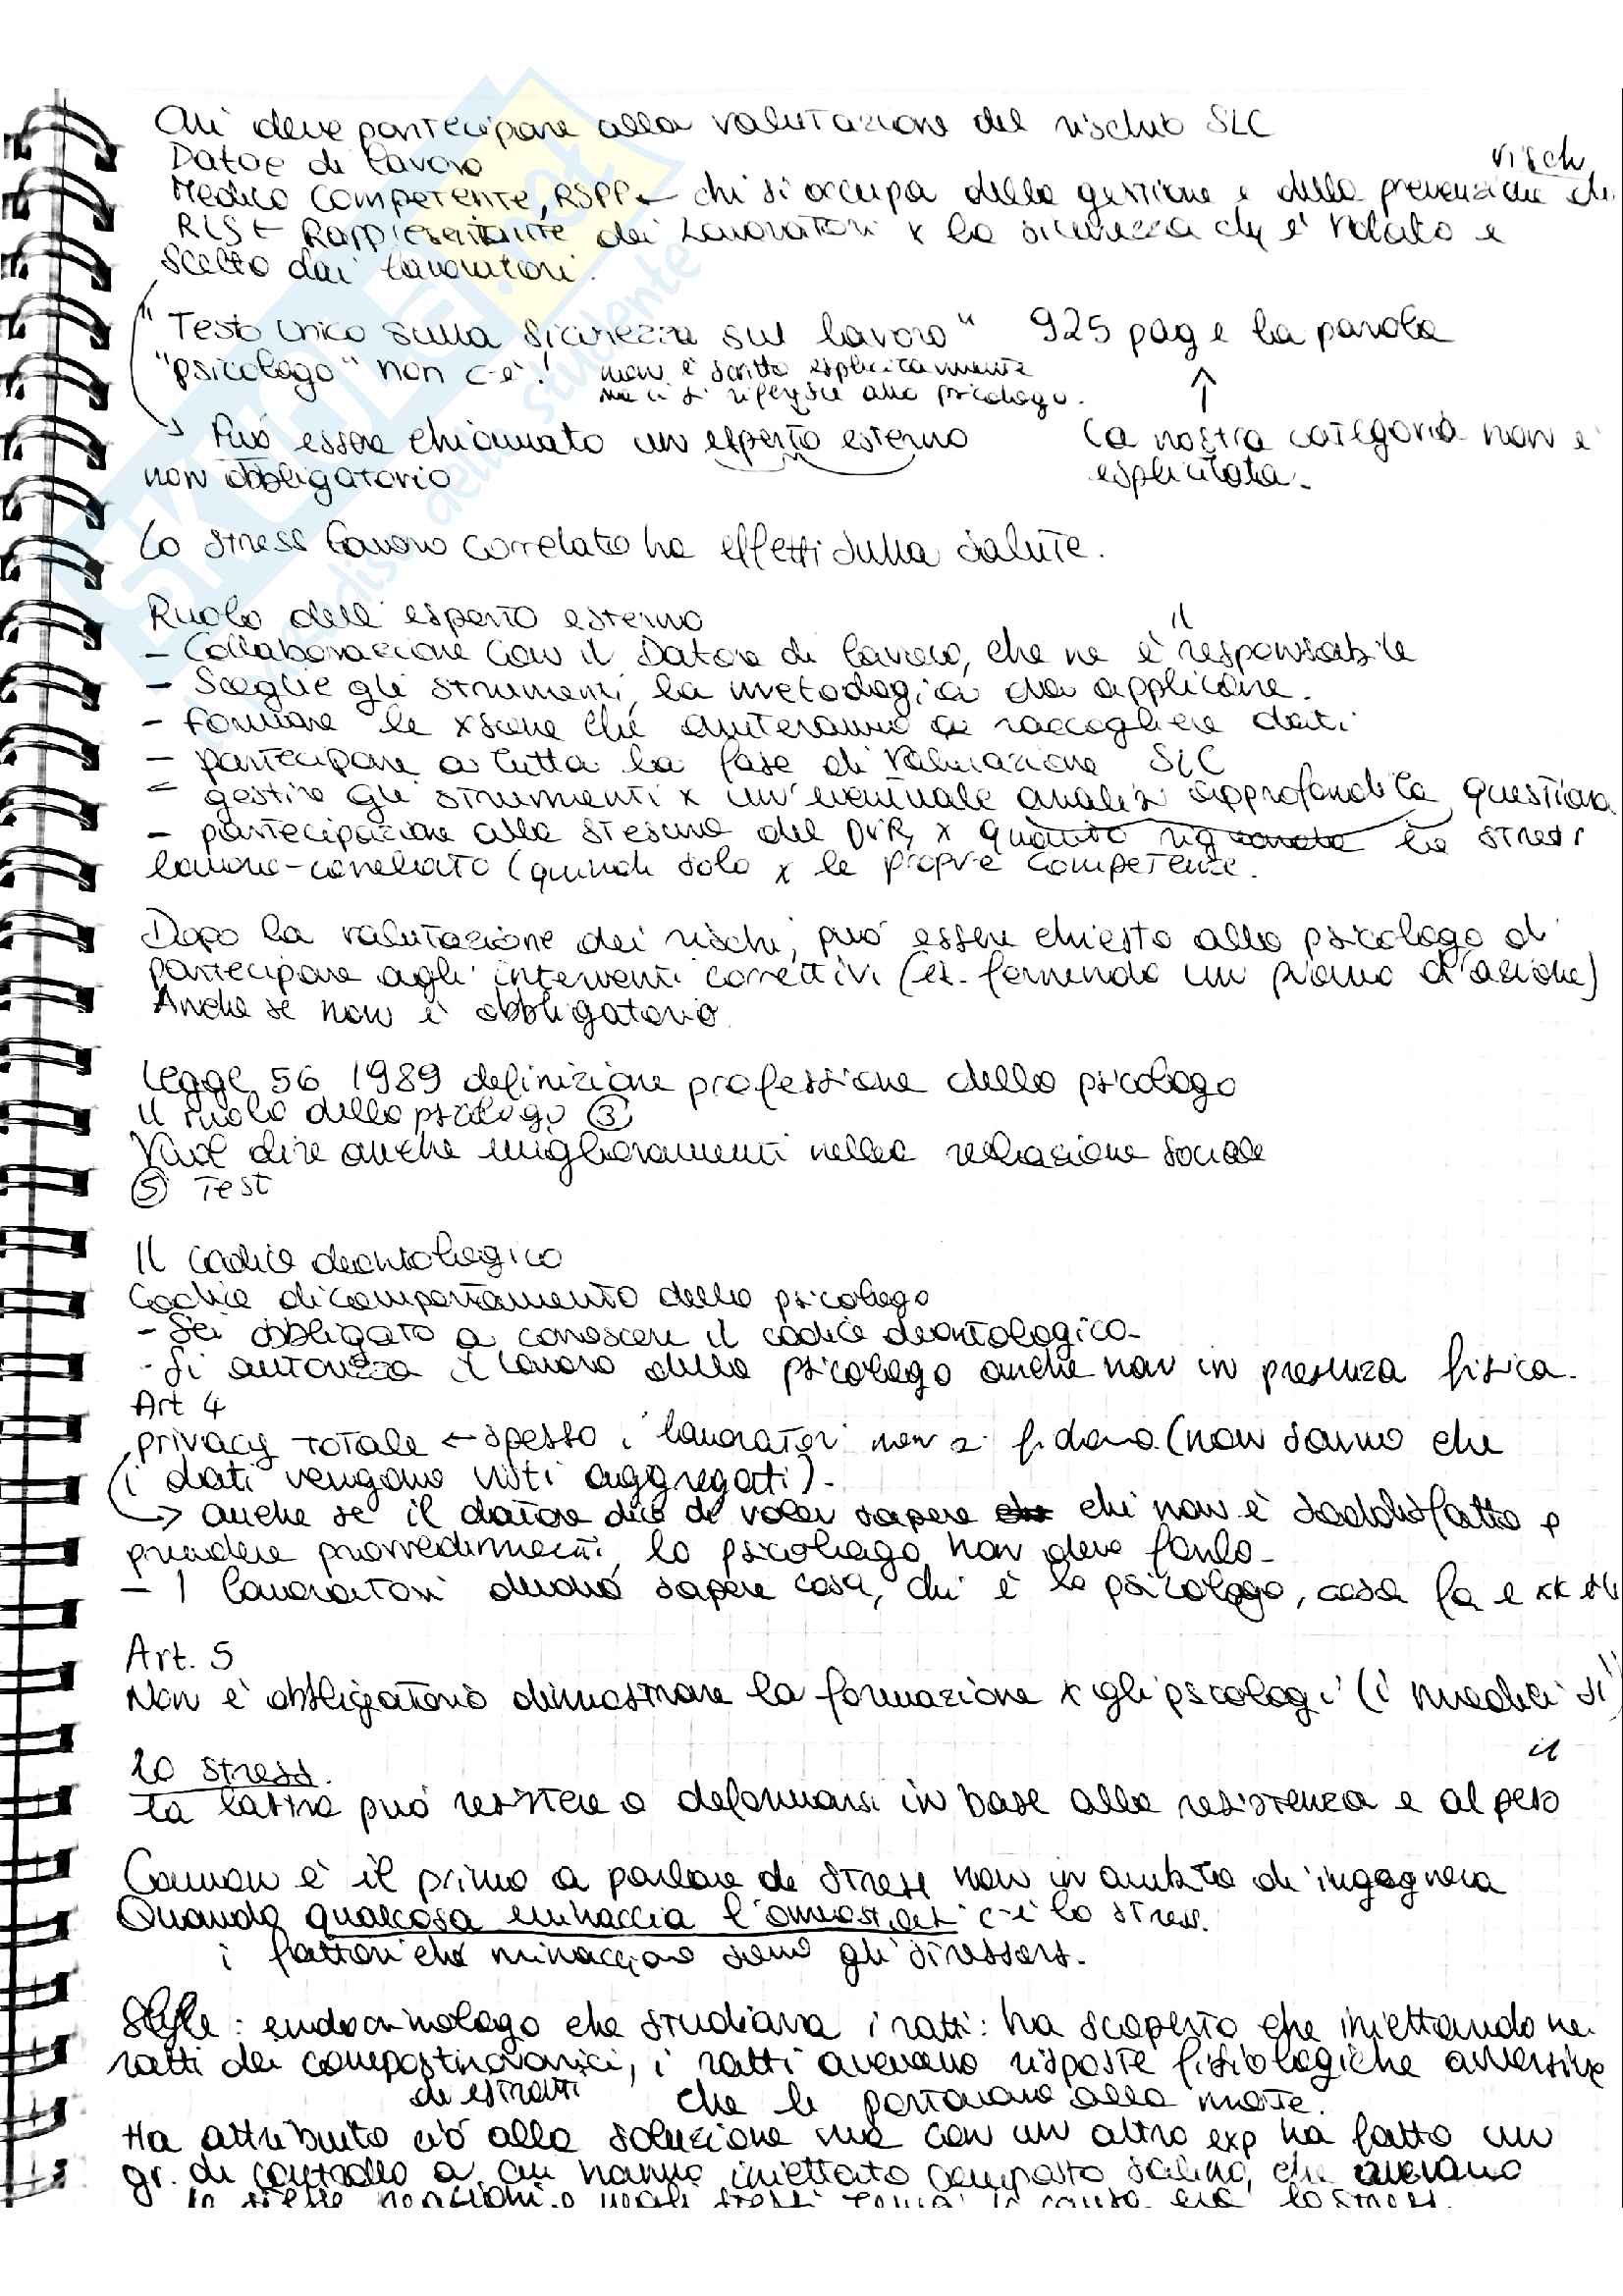 Chi deve partecipare alla valutazione del rischio SLC
Datoe di lavoro
Medico Competente, RSPP ← chi si occupa della gestione e della prevenzione dei risch
RLS ← Rappresentante dei Lavoratori x la sicurezza che è votato e
scelto dai lavoratori.
"Testo Unico sulla Sicurezza sul lavoro" 925 pag e la parola
"psicologo" non c'è! non è scritto esplicitamente
ma ci si riferisce allo psicologo.
↑
→ Può essere chiamato un esperto esterno
non obbligatorio
La nostra categoria non è
esplicitata.
Lo stress lavoro correlato ha effetti sulla salute.
Ruolo dell'esperto esterno
- Collaborazione con il Datore di lavoro, che ne è il responsabile
- Sceglie gli strumenti, la metodologia da applicare.
- Formare le xsone che aiuteranno a raccogliere dati
- partecipare a tutta la fase di valutazione SLC
- gestire gli strumenti x un'eventuale analisi approfondita, questiona
- partecipazione alla stesura del DVR, x quanto riguarda lo stress
lavoro-correlato (quindi solo x le proprie competenze.
Dopo la valutazione dei rischi, può essere chiesto allo psicologo di
partecipare agli interventi correttivi (es. fornendo un piano d'azione)
Anche se non è obbligatorio
Legge 56 1989 definizione professione dello psicologo
il ruolo dello psicologo ③
Vuol dire anche miglioramenti nella relazione sociale
⑤ Test
Il codice deontologico
Codice di comportamento dello psicologo
- Sei obbligato a conoscere il codice deontologico-
- Si autorizza il lavoro dello psicologo anche non in presenza fisica.
Art 4
privacy totale ← spesso i lavoratori non si fidano (non sanno che
i dati vengono visti aggregati).
→ anche se il datore dice di voler sapere chi non è soddisfatto e
prendere provvedimenti, lo psicologo non deve farlo-
- I lavoratori devono sapere cosa, chi è lo psicologo, cosa fa e xk
Art. 5
Non è obbligatorio dimostrare la formazione x gli psicologi (i medici sì)
Lo stress.
La lastra può resistere o deformarsi in base alla resistenza e al peso
il
Cannon è il primo a parlare di stress non in ambito di ingegneria
Quando qualcosa minaccia l'omeostasi c'è lo stress.
i fattori che minacciano sono gli stressors.
Selye: endocrinologo che studiava i ratti: ha scoperto che iniettando nei
ratti dei composti ovarici, i ratti avevano risposte fisiologiche avversive
di estratti
che li portavano alla morte.
Ha attribuito ciò alla soluzione ma con un altro exp ha fatto un
gr. di controllo a cui hanno iniettato composto salino, che avevano
le stesse reazioni lo stress.